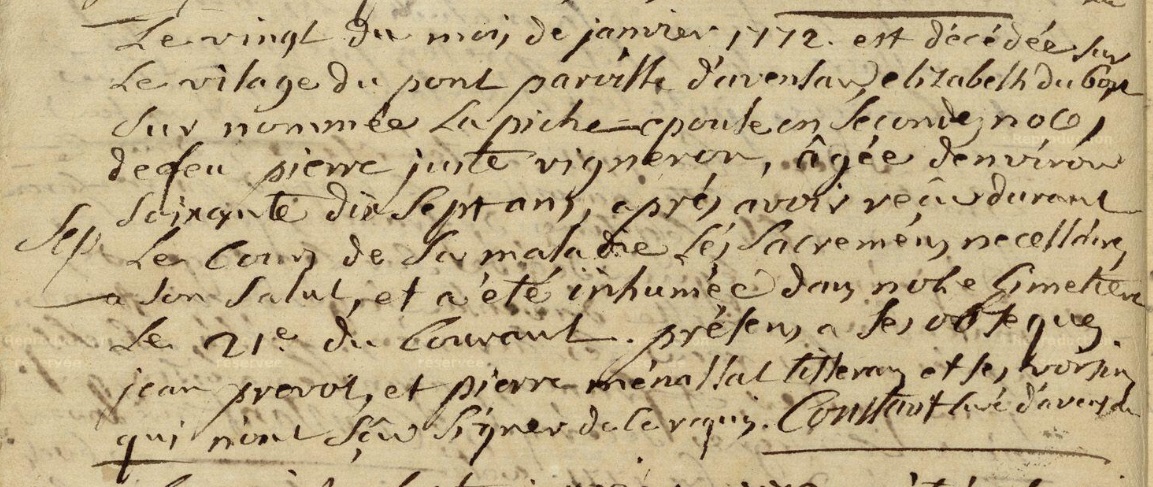 Le vingt du mois de janvier 1772. est décédée sur
Le vilage du pont paroisse d'avensan elizabeth du bos
sur nommée La piche epouse en seconde noce,
de feu pierre juste vigneron, âgée denviron
soixante dix sept ans, après avoir reçu durant
Sep
Le Cours de sa maladie les sacremens necessaires
a son salut, et a été inhumée dans notre Cimetiere
Le 21e. du Courant. présens a ses obseques.
jean prevot, et pierre ménassat tisseran et ses voisins
qui n'ont sçu signer de ce requis. Constant curé d'avensan